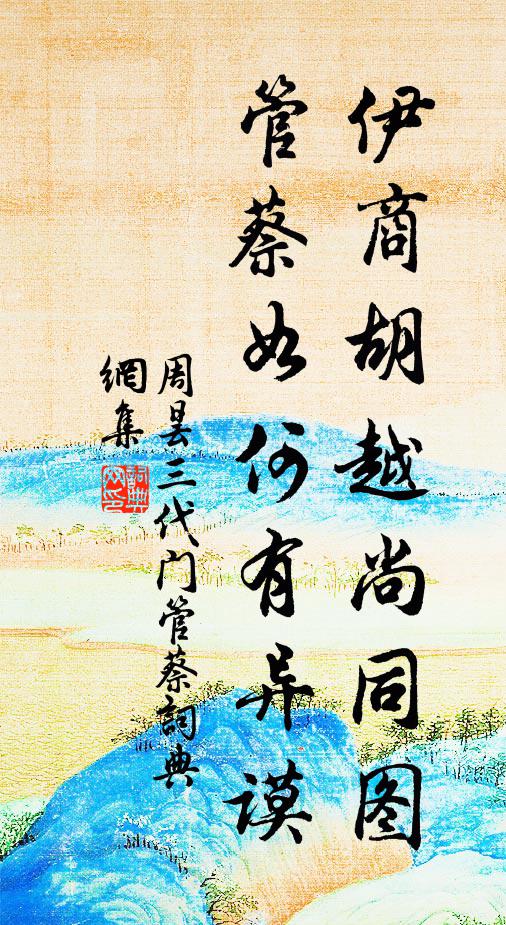 伊商胡越尚同图
管蔡如何有异谟
周昙三代门管蔡詞典
網集